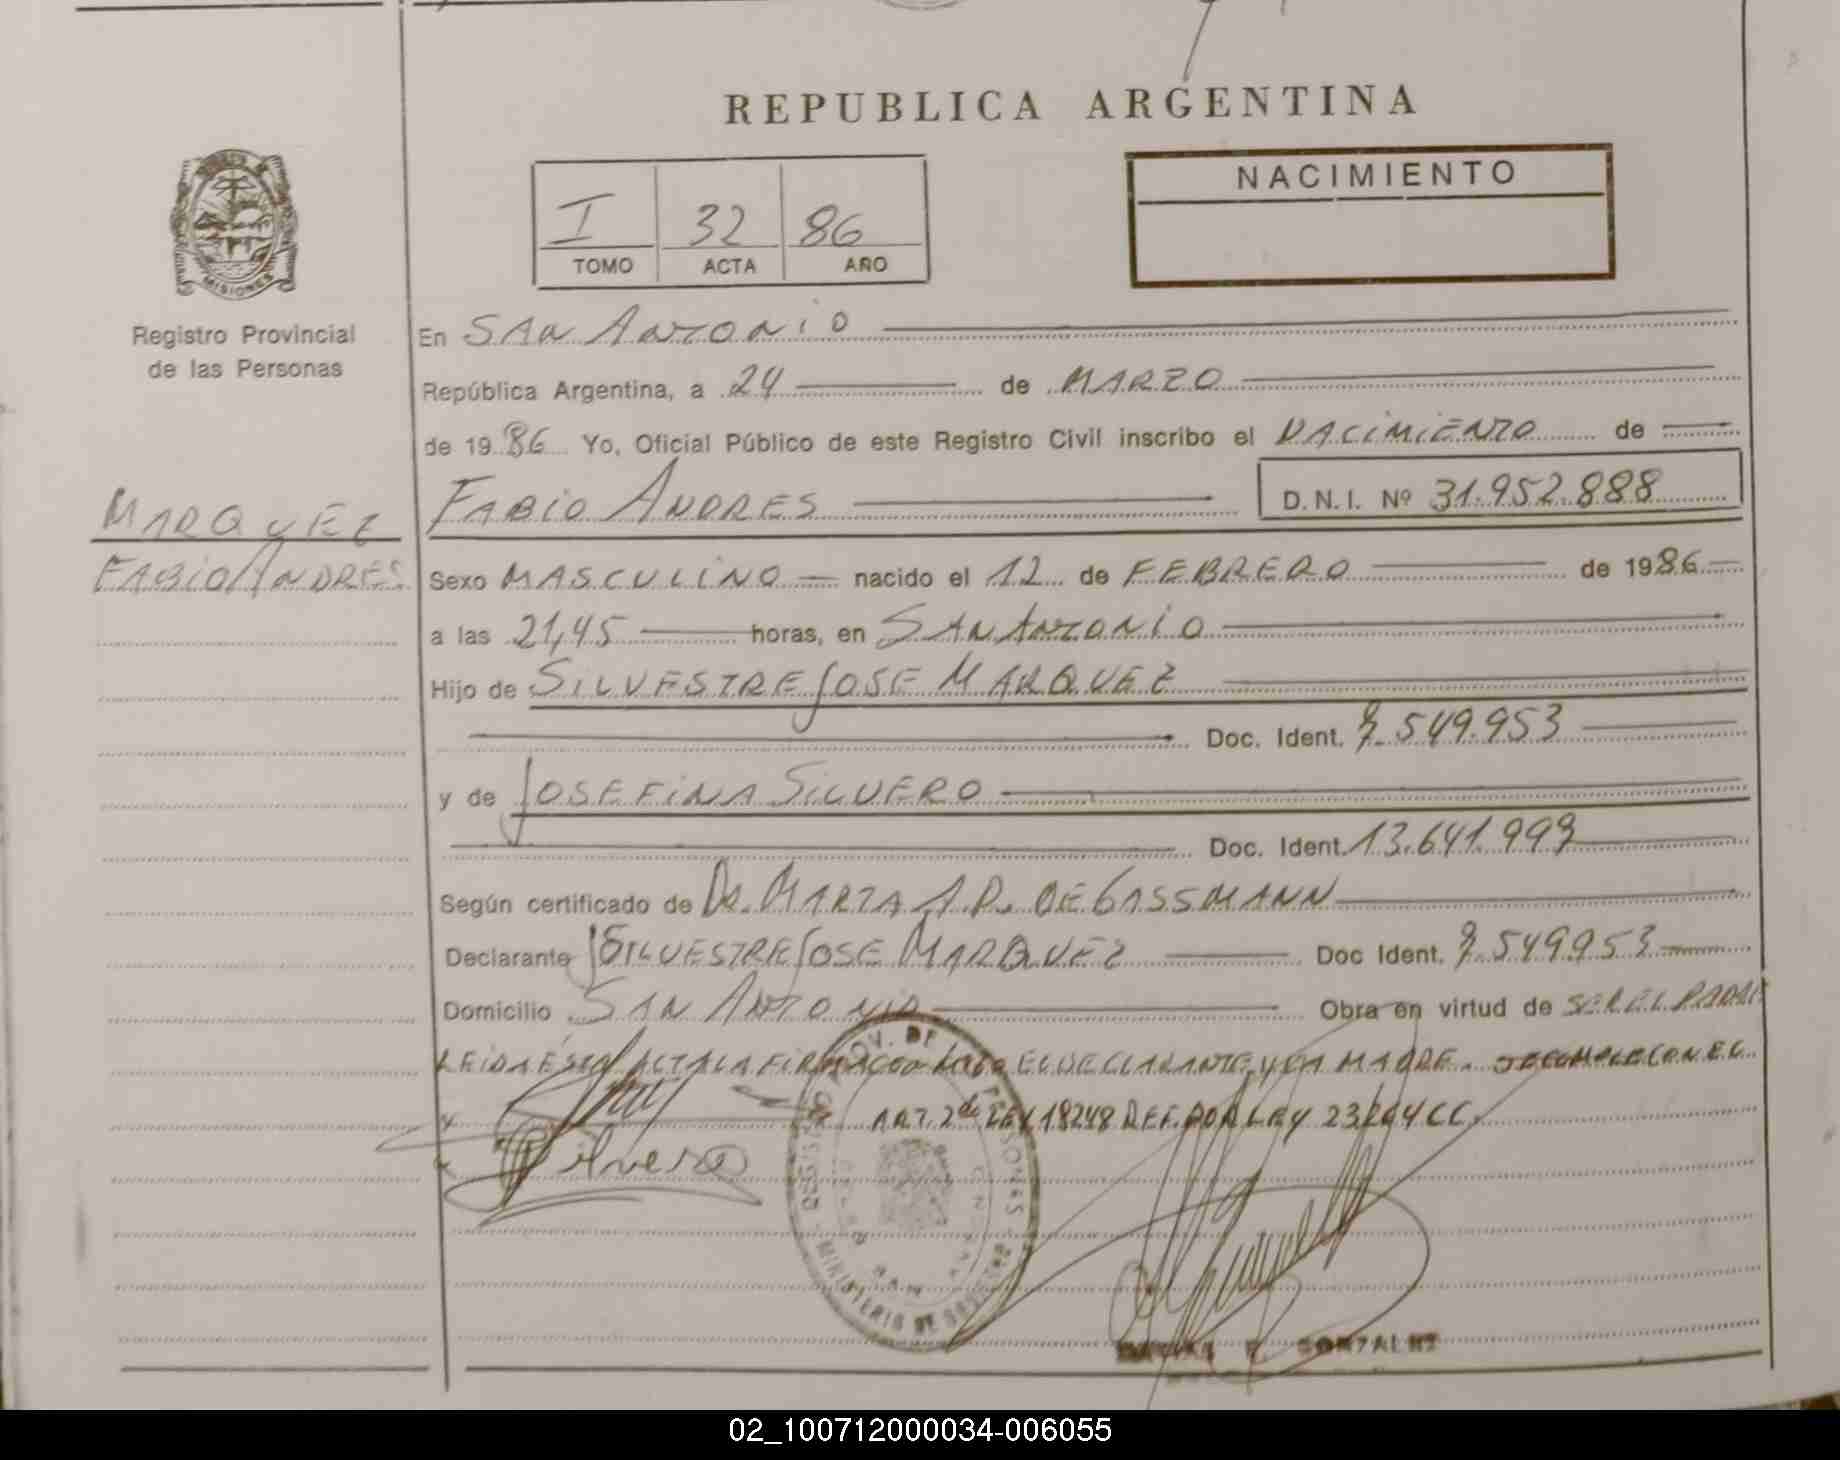 REPUBLICA ARGENTINA
NACIMIENTO
I 32 86
TOMO ACTA AÑO
MISIONES
Registro Provincial
de las Personas
MARQUEZ
FABIO ANDRES
En SAN ANTONIO
República Argentina, a 24 de MARZO
de 1986 Yo, Oficial Público de este Registro Civil inscribo el NACIMIENTO de
FABIO ANDRES D.N.I. Nº 31.952.888
Sexo MASCULINO nacido el 12 de FEBRERO de 1986
a las 21,45 horas, en SAN ANTONIO
Hijo de SILVESTRE JOSE MARQUEZ
Doc. Ident. 7.549.953
y de JOSEFINA SILVERO
Doc. Ident. 13.641.997
Según certificado de DR. MARTA A.D. DE GASSMANN
Declarante SILVESTRE JOSE MARQUEZ Doc Ident. 7.549.953
Domicilio SAN ANTONIO Obra en virtud de SER EL PADRE
LEIDA ÉSTA ACTA LA FIRMA EL DECLARANTE Y LA MADRE. SE CUMPLE CON EL
ART. 2do LEY 18248 REF. POR LEY 23264 CC.
Silvero
MINISTERIO DE
GONZALEZ
02_100712000034-006055